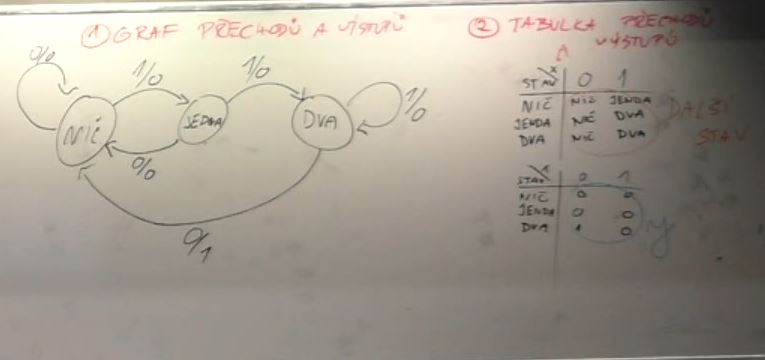 ① GRAF PŘECHODŮ A VÝSTUPŮ
0/0
1/0
1/0
NIČ
JEDNA
DVA
1/0
0/0
0/1
② TABULKA PŘECHODŮ
A VÝSTUPŮ
STAV X 0 1
NIČ NIČ JENDA
JENDA NIČ DVA
DVA NIČ DVA
DALŠÍ
STAV
STAV X 0 1
NIČ 0 0
JENDA 0 0
DVA 1 0
y